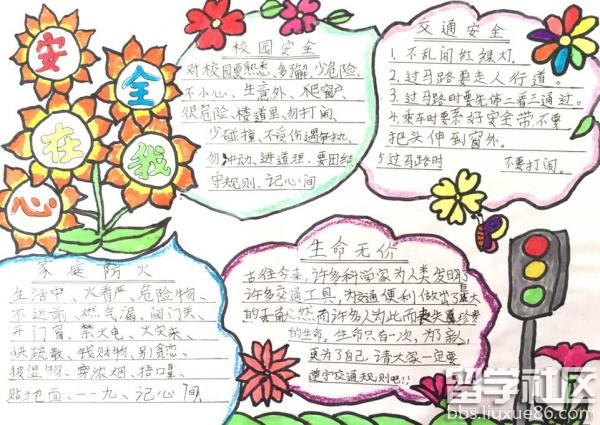 安
全
在
我
心
校园安全
对校园要熟悉、多了解、少危险、
不小心、生意外、爬窗户
很危险、楼道里、勿打闹、
少碰撞、不受伤、遇事
勿冲动、进道理、要团结、
守规则、记心间
交通安全
1.不乱闯红绿灯.
2.过马路要走人行道。
3.过马路时要先停二看三通过。
4.乘车时要系好安全带、不要
把头伸到窗外。
5.过马路时 不要打闹。
家庭防火
生活中、火着严、危险物、
不远离、燃气漏、阀门关、
开门窗、禁火电、火突来、
快疏散、钱财物、别贪恋、
披湿物、穿浓烟、捂口鼻、
贴地面、一一九、记心间
生命无价
古往今来,许多科学家为人类发明了
许多交通工具,为交通便利做出了最大
的 然而许多人为此而丧失宝珍贵
的生命。生命只有一次,为了亲人
更为了自己,请大家一定要
遵守交通规则吧!!
留学社区
bbs.liuxue86.com